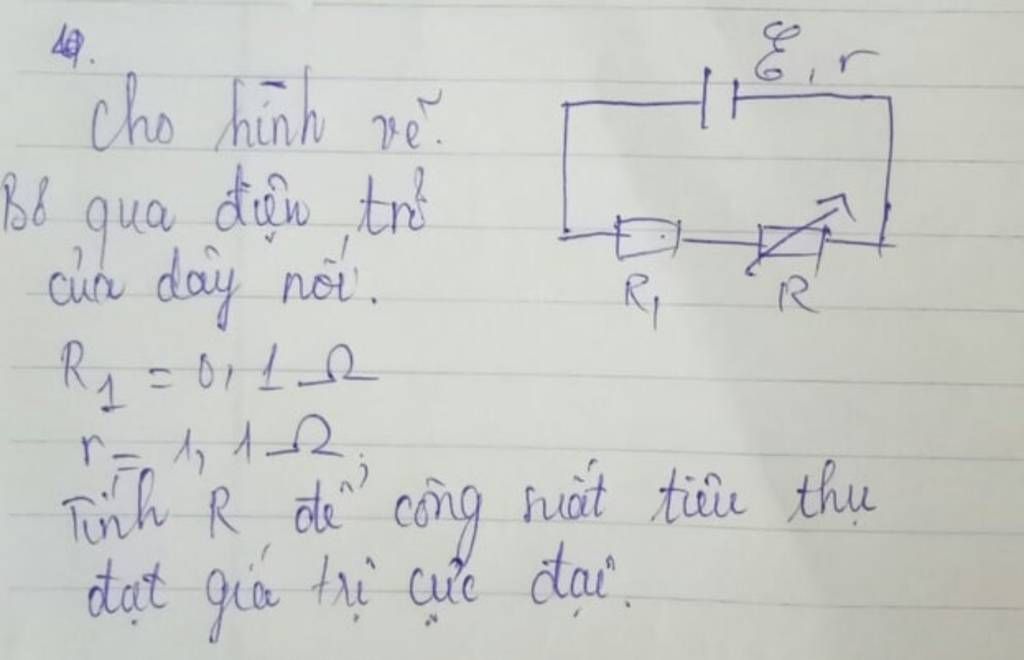 Cho hình vẽ.
Bỏ qua điện trở
của dây nối.
R₁ = 0,1 Ω
r = 1,1 Ω.
Tính R để công suất tiêu thụ
đạt giá trị cực đại.
ℰ, r
R₁ R